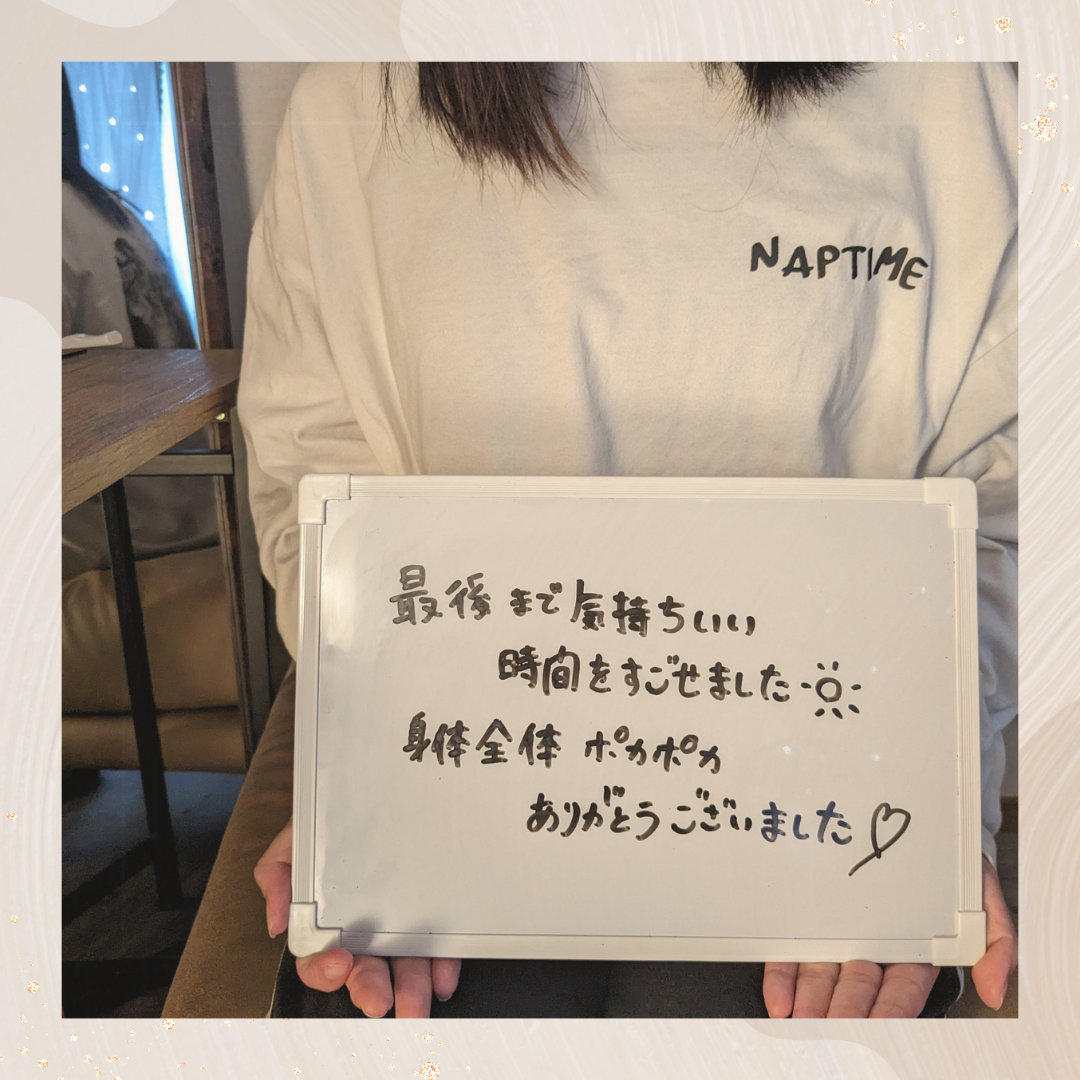 NAPTIME
最後まで気持ちいい
時間をすごせました
身体全体 ポカポカ
ありがとうございました